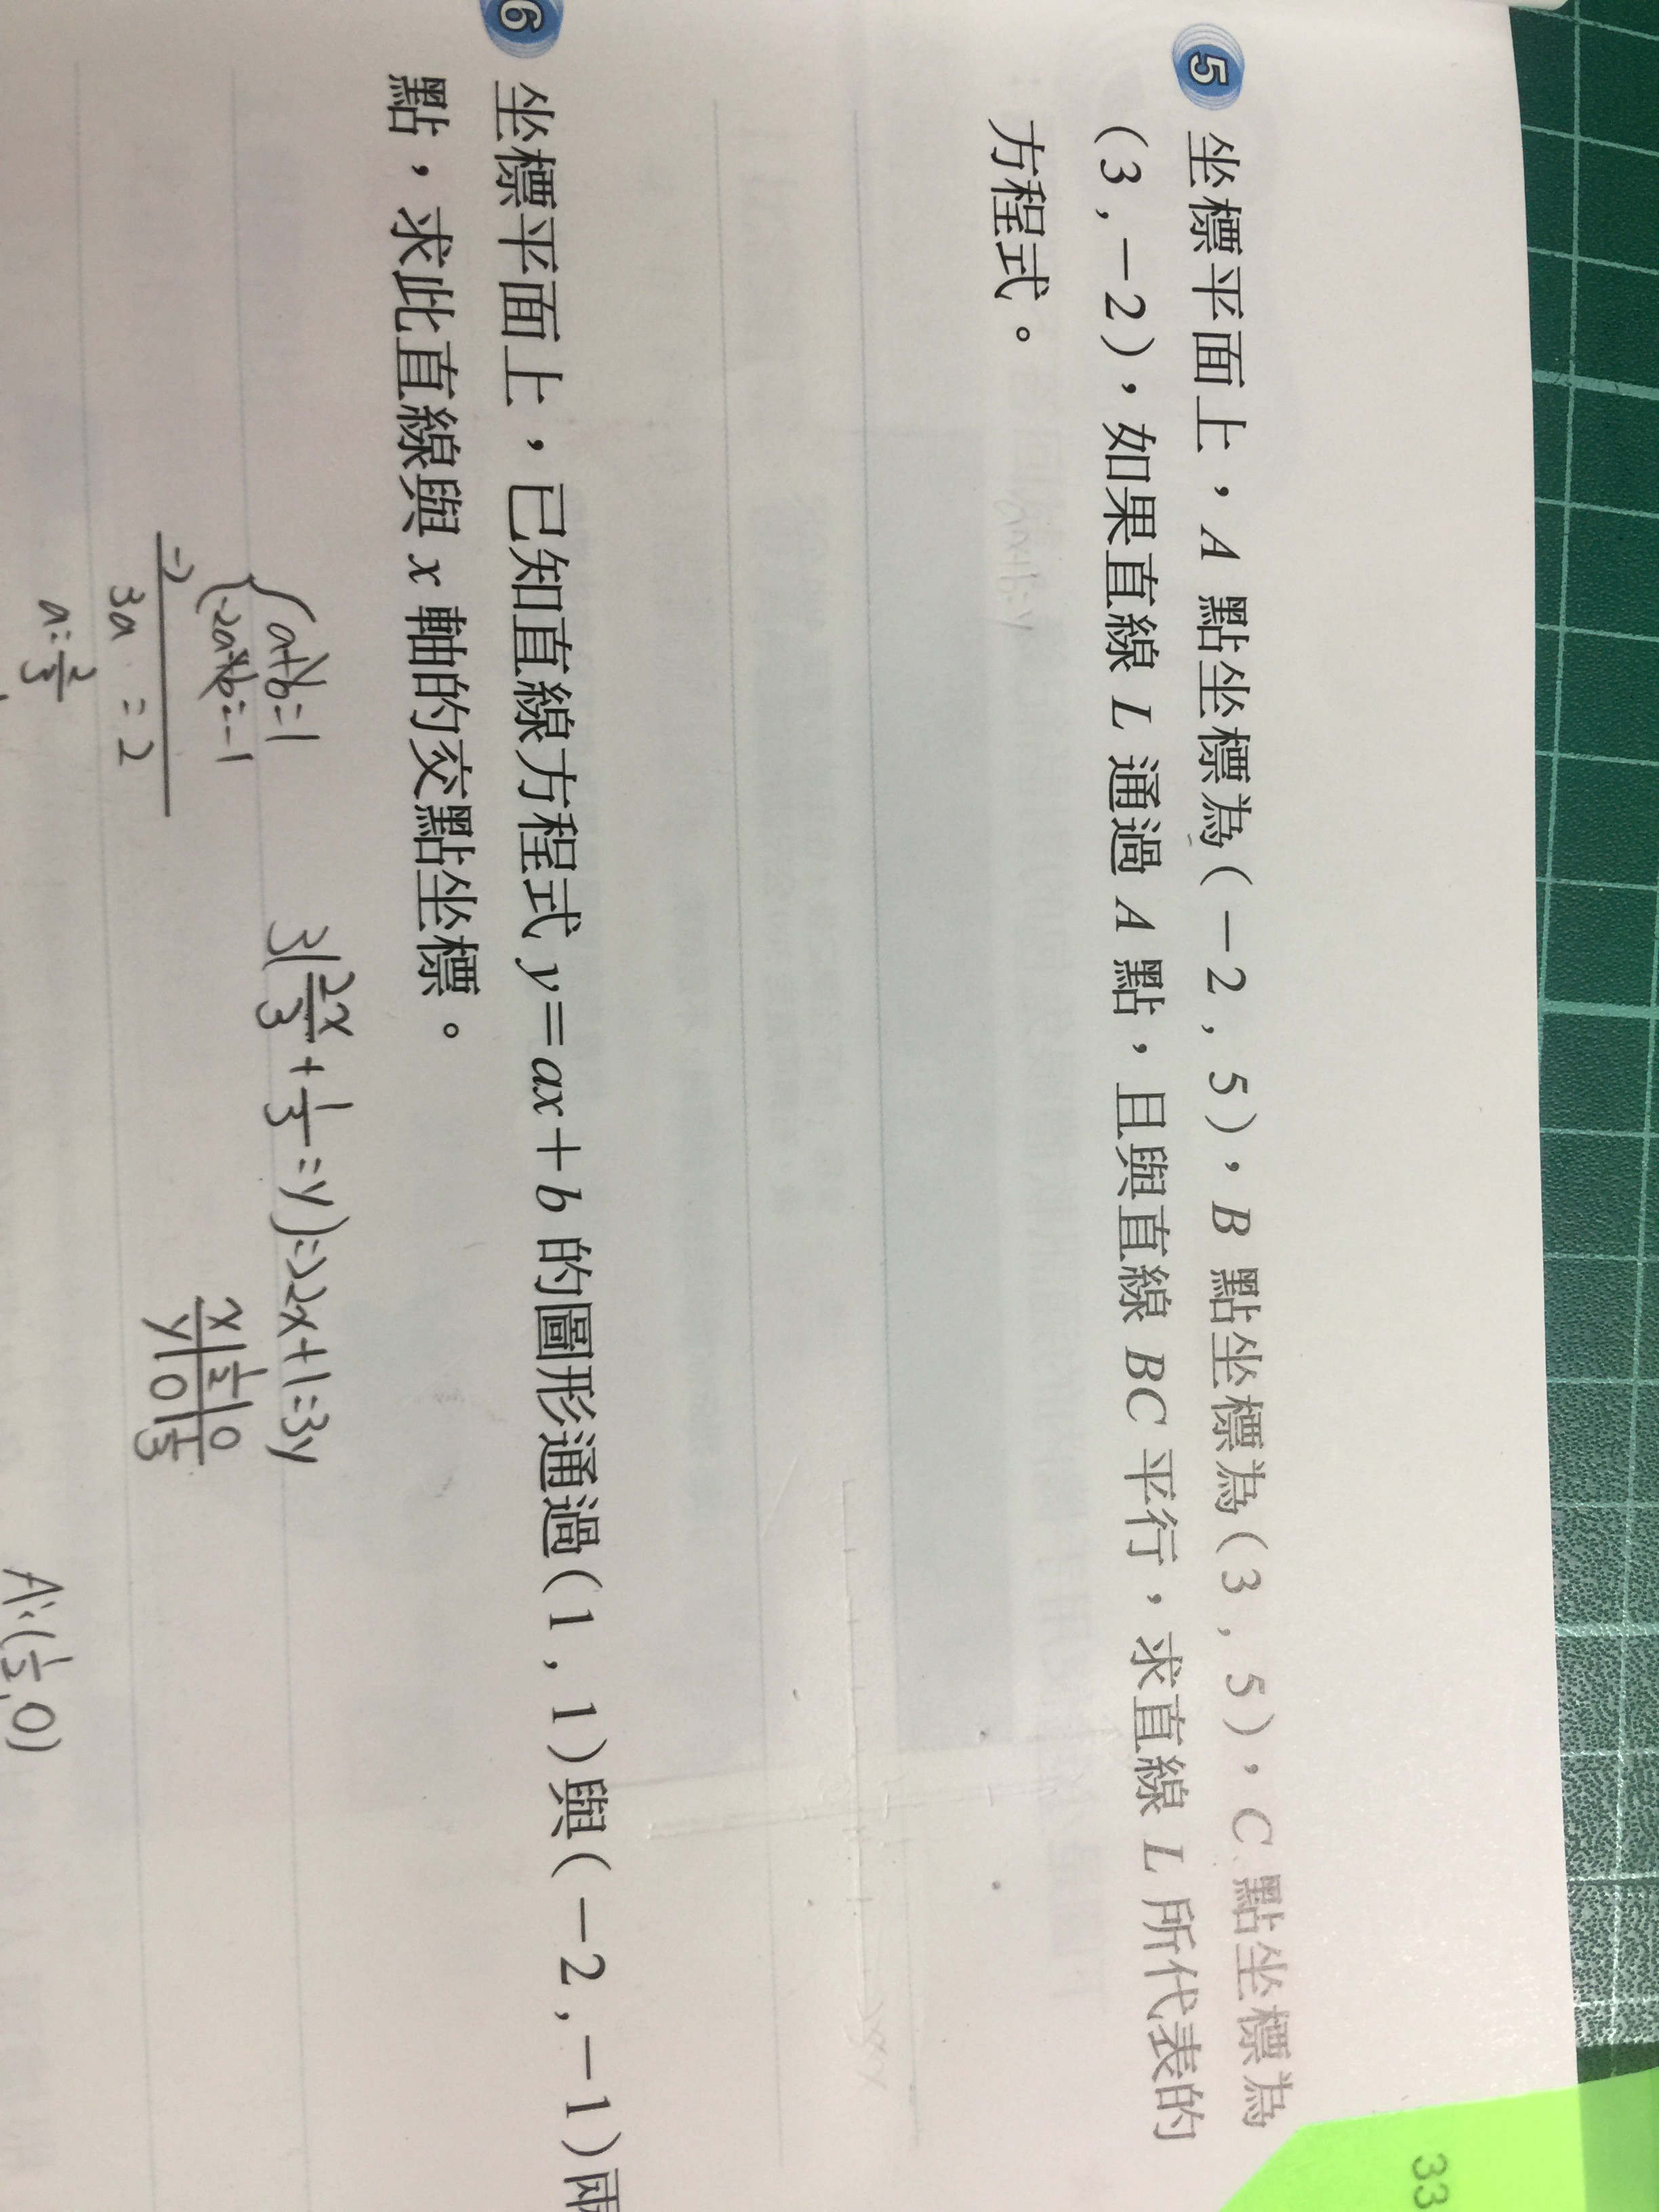 5 坐標平面上，A 點坐標為(－2 , 5)，B 點坐標為(3 , 5)，C 點坐標為
(3 , －2)，如果直線 L 通過 A 點，且與直線 BC 平行，求直線 L 所代表的
方程式。
6 坐標平面上，已知直線方程式 y＝ax＋b 的圖形通過(1 , 1)與(－2 , －1)兩
點，求此直線與 x 軸的交點坐標。
a+b=1
-2a+b=-1
-) 3a = 2
a=2/3
3(2x/3 + 1/3 = y)=>2x+1=3y
x | 1/2 | 0
y | 0 | 1/3
A:(1/2,0)
33